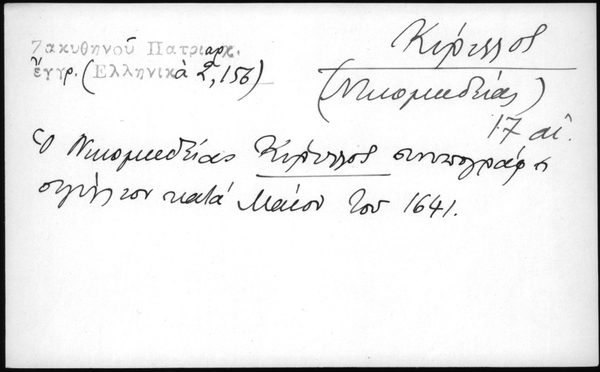 Ζακυθηνοῦ Πατριαρχ.
ἔγγρ. (Ἑλληνικὰ 2, 156)
Κύριλλος
(Νικομηδείας)
17 αἰ.
Ὁ Νικομηδείας Κύριλλος συνυπογράφει
σιγίλλιον κατά Μάϊον του 1641.